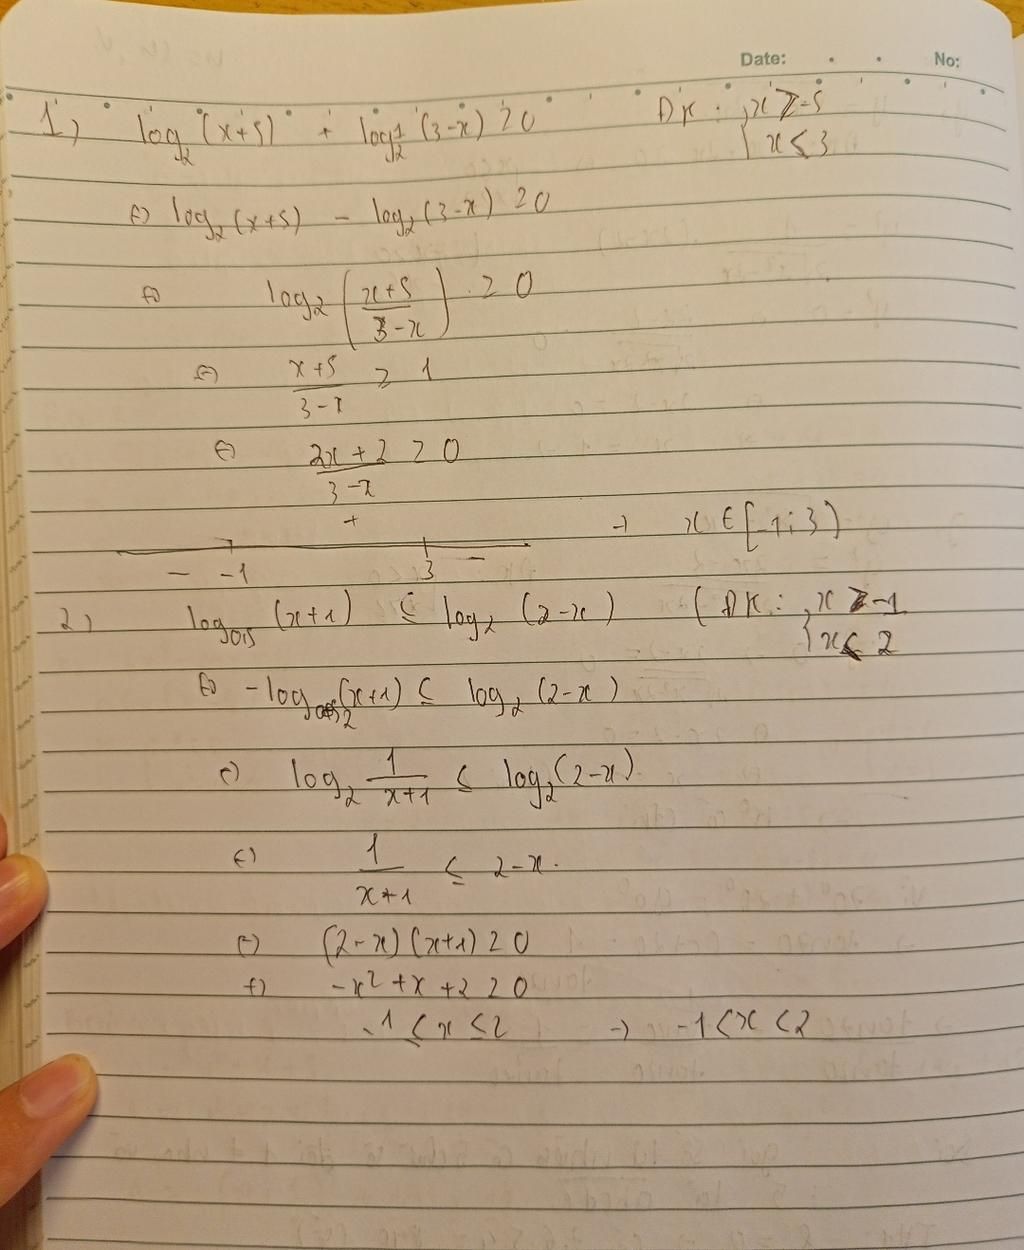 Date: . . No:
1) log₂(x+5) + log_{1/2}(3-x) ≥ 0 ĐK: { x > -5
x < 3
⇔ log₂(x+5) - log₂(3-x) ≥ 0
⇔ log₂((x+5)/(3-x)) ≥ 0
⇔ (x+5)/(3-x) ≥ 1
⇔ (2x+2)/(3-x) ≥ 0
+
→ x ∈ [-1; 3)
- -1 3 -
2) log_{0,5}(x+1) ≤ log₂(2-x) ( ĐK: { x > -1
x < 2
⇔ -log₂(x+1) ≤ log₂(2-x)
⇔ log₂ 1/(x+1) ≤ log₂(2-x)
⇔ 1/(x+1) ≤ 2-x.
⇔ (2-x)(x+1) ≥ 0
⇔ -x² + x + 2 ≥ 0
-1 ≤ x ≤ 2 → -1 < x < 2